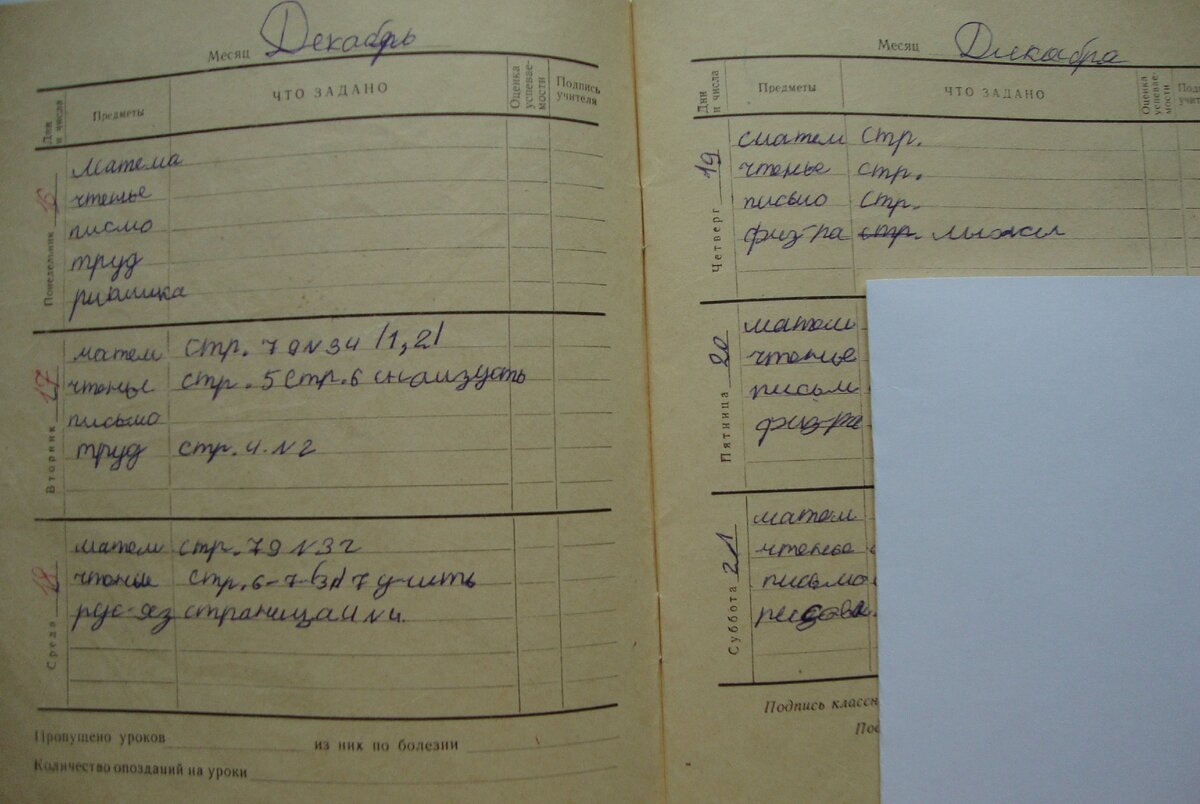 Месяц Декабрь
Дни и числа Предметы ЧТО ЗАДАНО Оценка успевае-мости Подпись учителя
Понедельник 16
матема
чтенье
писмо
труд
Вторник 17
матем стр. 79 №34 (1,2)
чтенье стр. 5 стр. 6 наизусть
письмо
труд стр. 4. №2
Среда 18
матем стр. 79 №32
чтение стр. 6-7 учить
рус-яз страница №4.
Пропущено уроков из них по болезни
Количество опозданий на уроки
Месяц Дикабра
Дни и числа Предметы ЧТО ЗАДАНО Оценка успевае-мости
Четверг 19
матем стр.
чтенье стр.
письмо стр.
физ-ра стр. лыжи
Пятница 20
матем
чтенье
письм
физ-ра
Суббота 21
матем
чтенье
письмо
Подпись классн